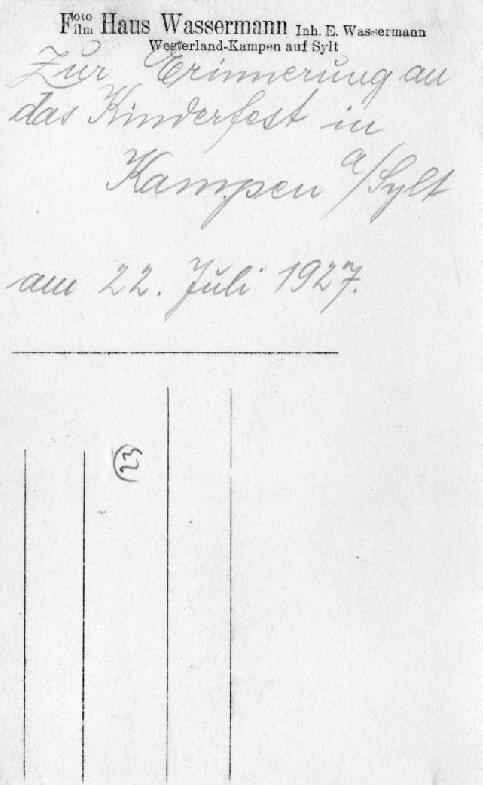 Foto Film Haus Wassermann Inh. E. Wassermann
Westerland-Kampen auf Sylt
Zur Erinnerung an
das Kinderfest in
Kampen a/Sylt
am 22. Juli 1927.
23